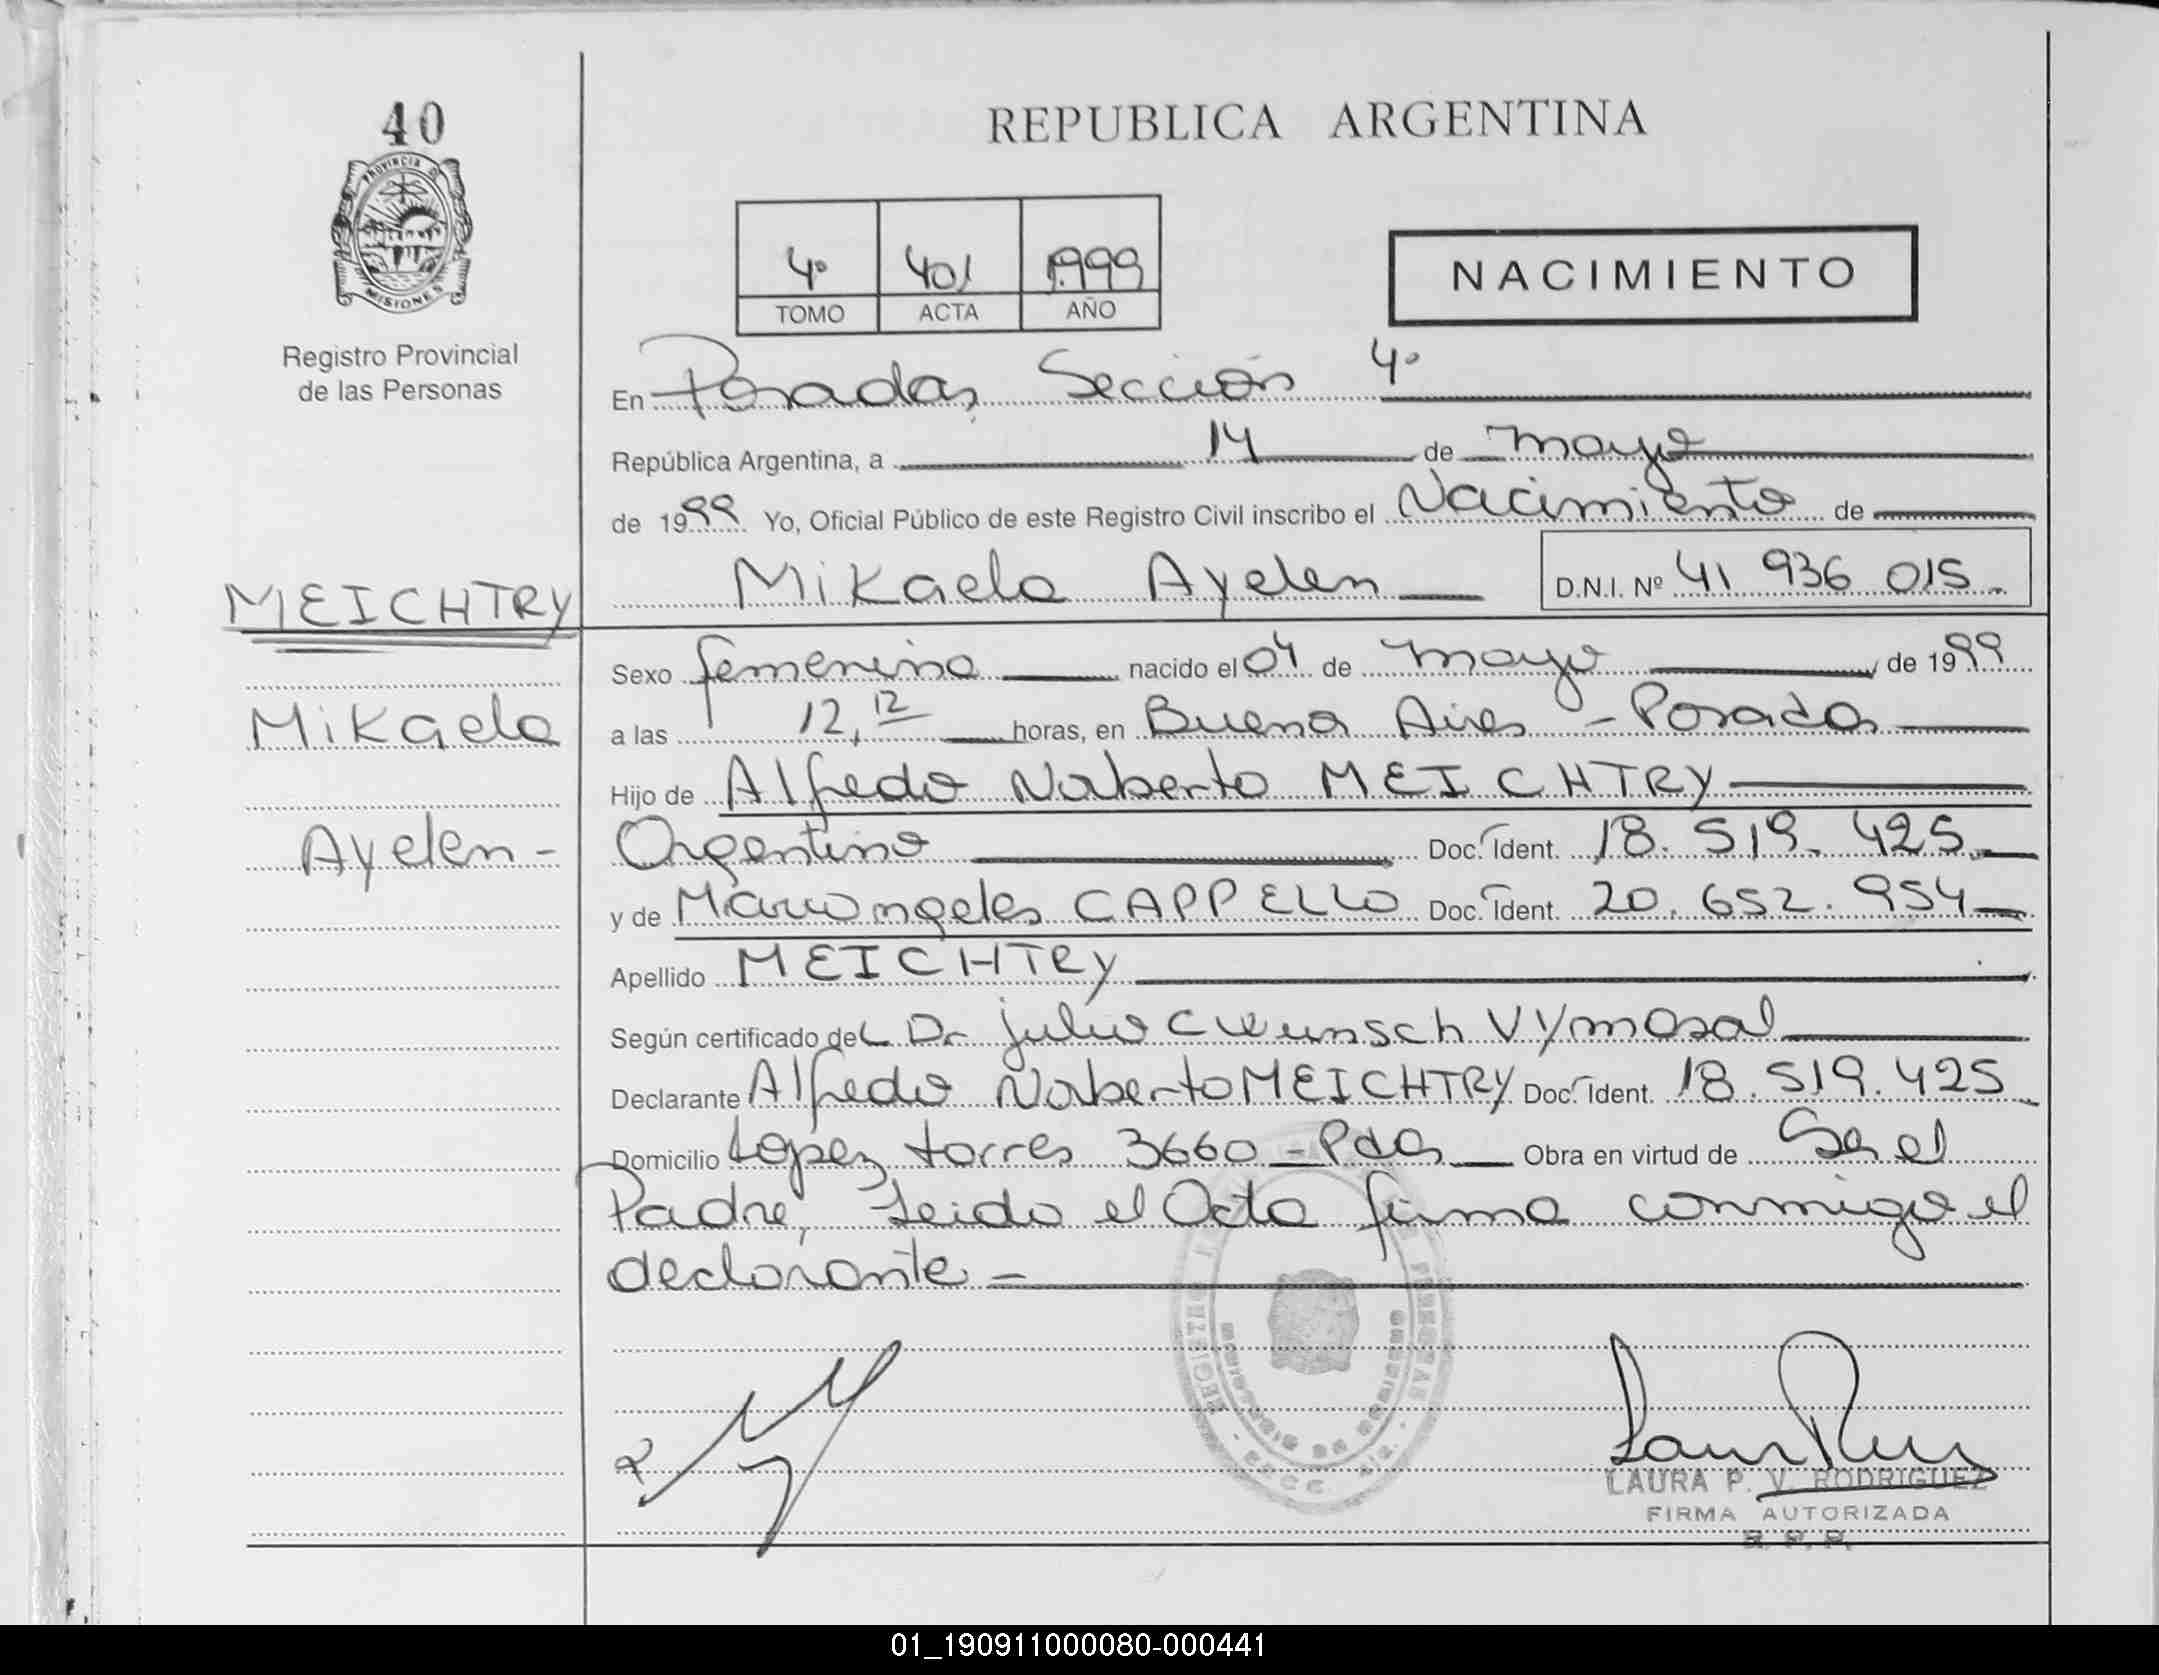 40
PROVINCIA D
MISIONES
Registro Provincial
de las Personas
REPUBLICA ARGENTINA
4º 401 1999
TOMO ACTA AÑO
NACIMIENTO
En Posadas, Sección 4º
República Argentina, a 14 de mayo
de 1999 Yo, Oficial Público de este Registro Civil inscribo el Nacimiento de
Mikaela Ayelen D.N.I. Nº 41 936 015.
MEICHTRY
Mikaela
Ayelen -
Sexo femenino nacido el 04 de mayo de 1999
a las 12,12 horas, en Buenos Aires - Posadas
Hijo de Alfredo Norberto MEICHTRY
Argentino Doc. Ident. 18.519.425
y de Mariangeles CAPPELLO Doc. Ident. 20.652.954
Apellido MEICHTRY
Según certificado del Dr Julio C Wunsch Vymosal
Declarante Alfredo Norberto MEICHTRY Doc. Ident. 18.519.425
Domicilio Lopez torres 3660 - Pdas Obra en virtud de Ser el
Padre, Leido el Acta firma conmigo el
declarante -
REGISTRO
LAURA P. V. RODRIGUEZ
FIRMA AUTORIZADA
R. P. P.
01_190911000080-000441